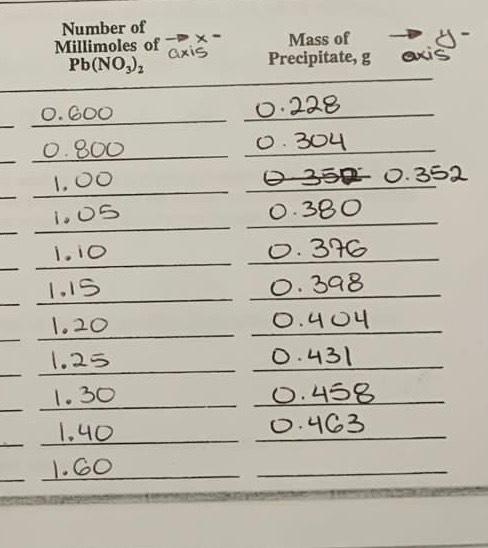 Number of
Millimoles of → x-
Pb(NO₃)₂ axis
Mass of → y-
Precipitate, g axis
0.600 0.228
0.800 0.304
1.00 0.352
1.05 0.380
1.10 0.376
1.15 0.398
1.20 0.404
1.25 0.431
1.30 0.458
1.40 0.463
1.60